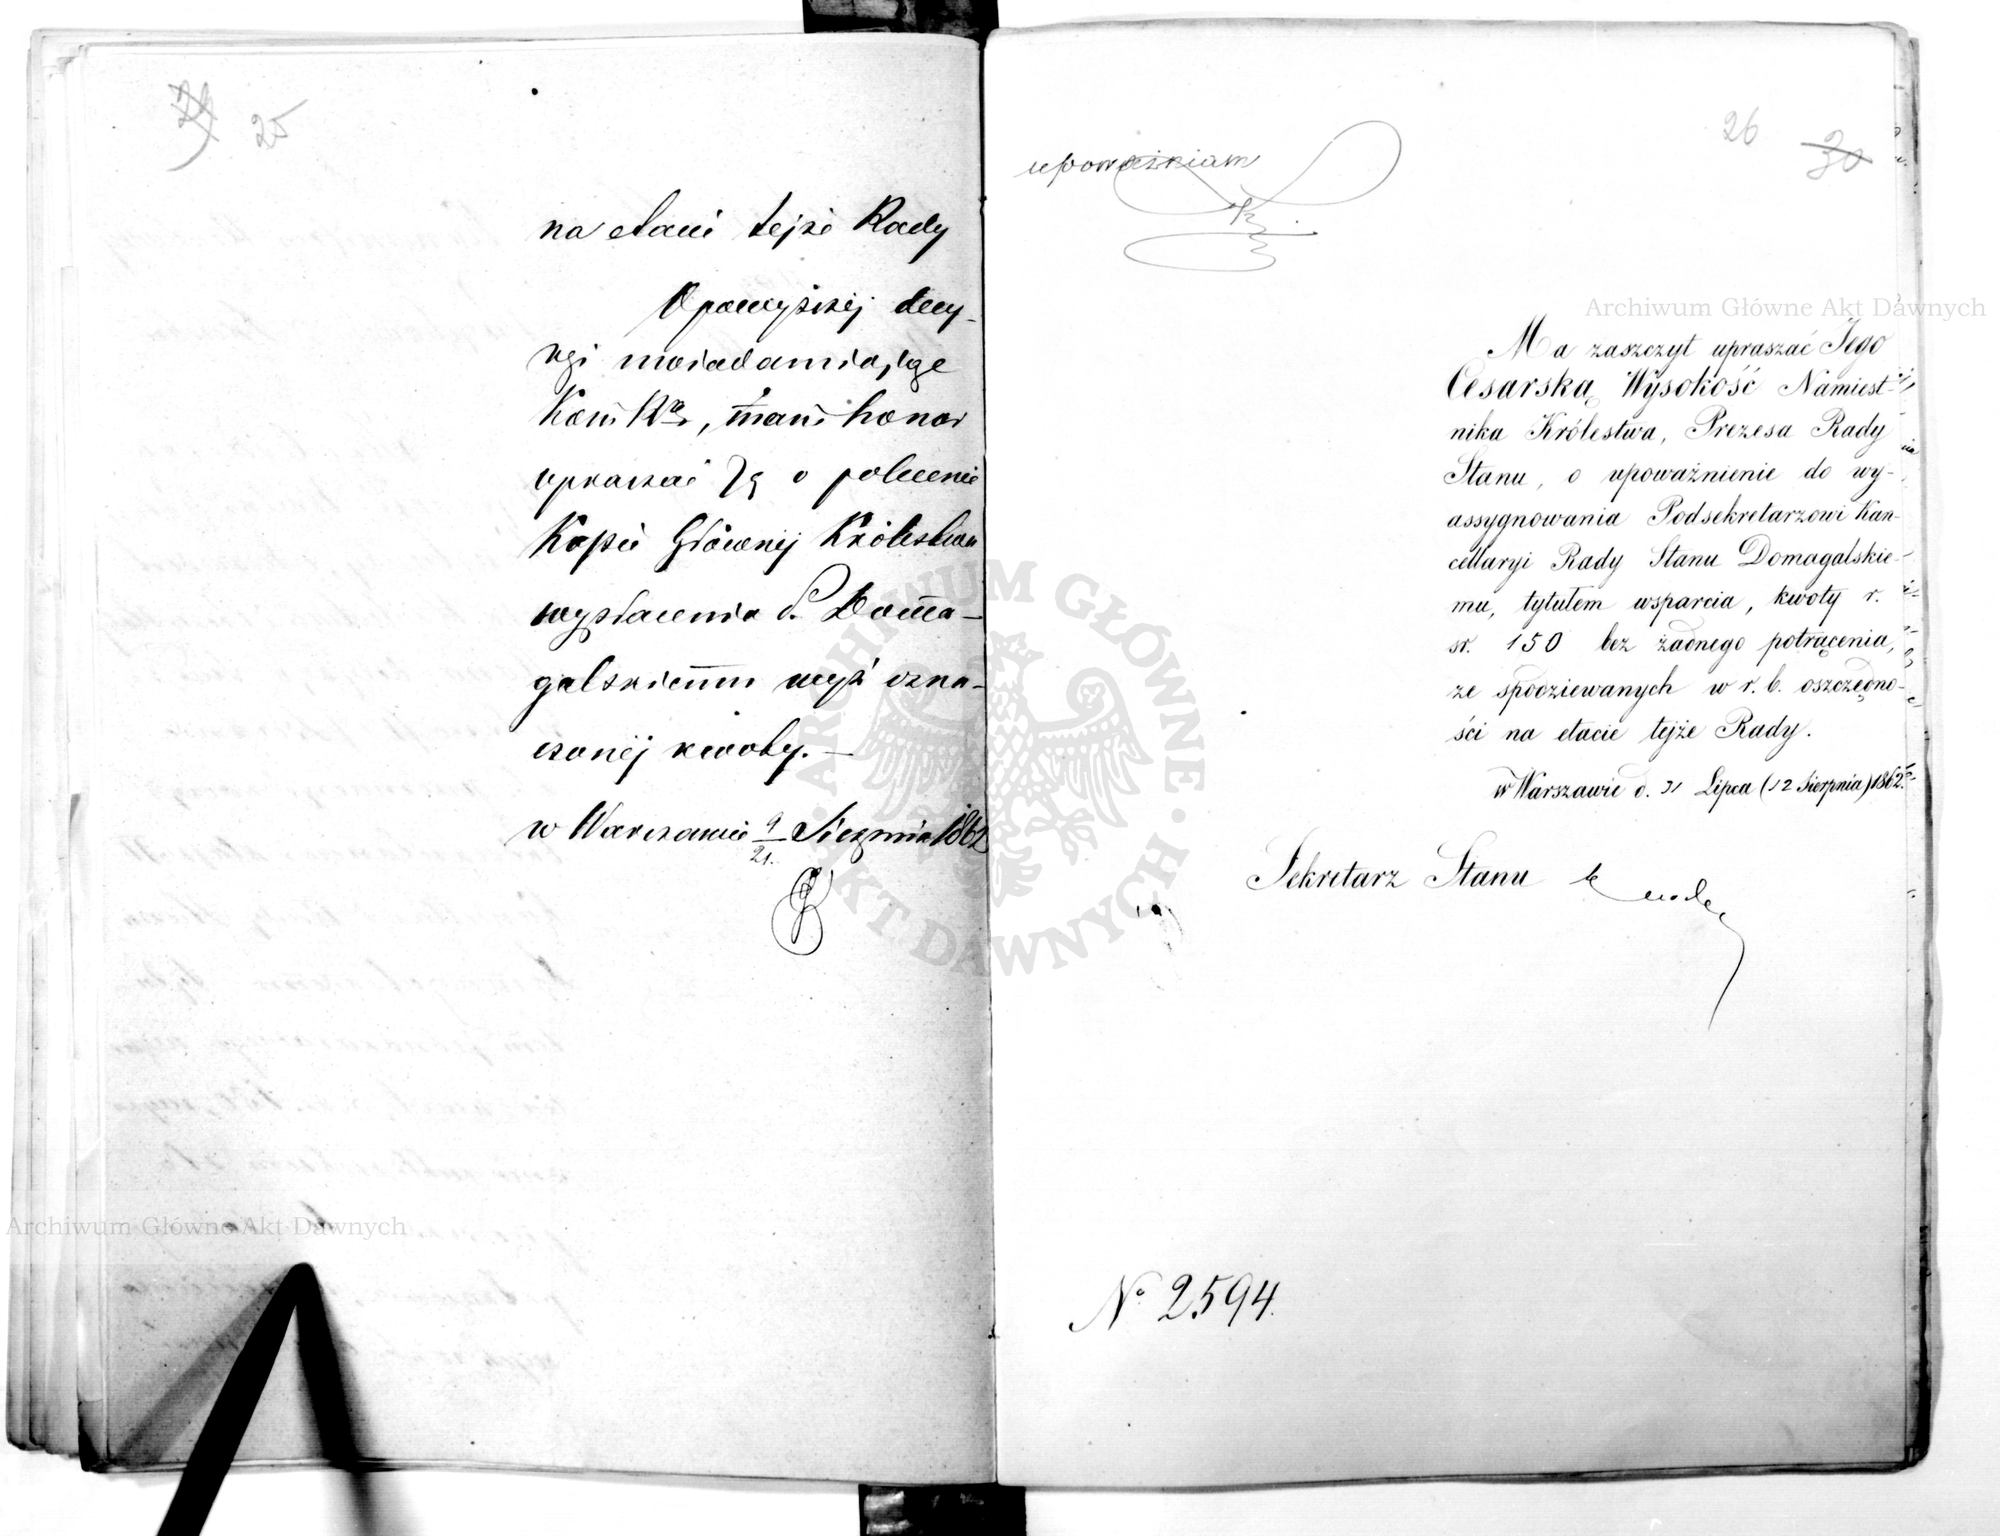 25
na etacie tejże Rady
O powyższej decy-
zyi zawiadamiając
Kom. Rz., mam honor
upraszać Ją o polecenie
Kassie Głównej Królestwa
wypłacenia P. Doma-
galskiemu wyż ozna-
czonej kwoty.
w Warszawie 9/21 Sierpnia 1862
26
30
upoważniam
Ma zaszczyt upraszać Jego
Cesarską Wysokość Namiest-
nika Królestwa, Prezesa Rady
Stanu, o upoważnienie do wy-
assygnowania Podsekretarzowi Kan-
cellaryi Rady Stanu Domagalskie-
mu, tytułem wsparcia, kwoty r.
sr. 150 bez żadnego potrącenia,
ze spodziewanych w r. b. oszczędno-
ści na etacie tejże Rady.
w Warszawie d. 31 Lipca (12 Sierpnia) 1862 r.
Sekretarz Stanu
No 2594.
Archiwum Główne Akt Dawnych
Archiwum Główne Akt Dawnych
ARCHIWUM GŁÓWNE AKT DAWNYCH